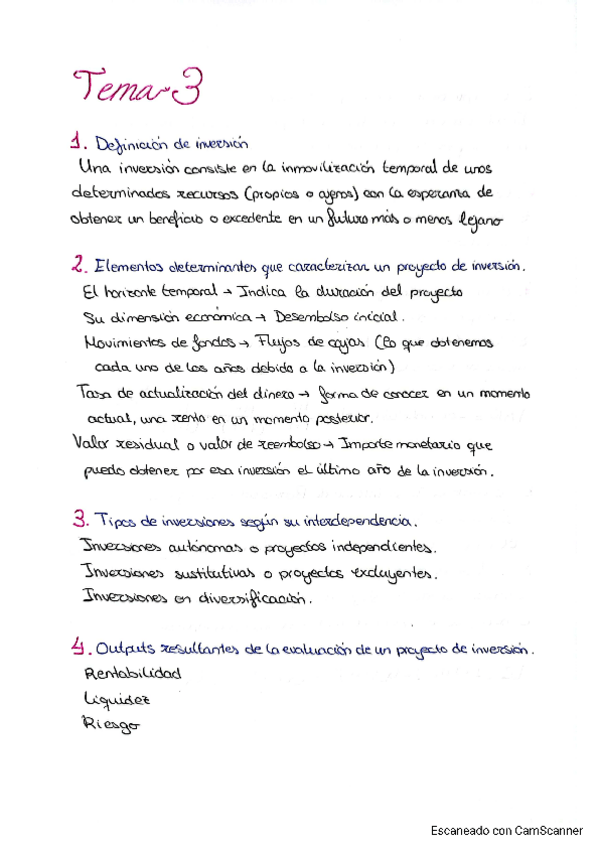 Tema-3
1. Definición de inversión
Una inversión consiste en la inmovilización temporal de unos
determinados recursos (propios o ajenos) con la esperanza de
obtener un beneficio o excedente en un futuro más o menos lejano
2. Elementos determinantes que caracterizan un proyecto de inversión.
El horizonte temporal → Indica la duración del proyecto
Su dimensión económica → Desembolso inicial.
Movimientos de fondos → Flujos de cajas (lo que obtenemos
cada uno de los años debido a la inversión)
Tasa de actualización del dinero → forma de conocer en un momento
actual, una renta en un momento posterior.
Valor residual o valor de reembolso → Importe monetario que
puedo obtener por esa inversión el último año de la inversión.
3. Tipos de inversiones según su interdependencia.
Inversiones autónomas o proyectos independientes.
Inversiones sustitutivas o proyectos excluyentes.
Inversiones en diversificación.
4. Outputs resultantes de la evaluación de un proyecto de inversión.
Rentabilidad
Liquidez
Riesgo
Escaneado con CamScanner